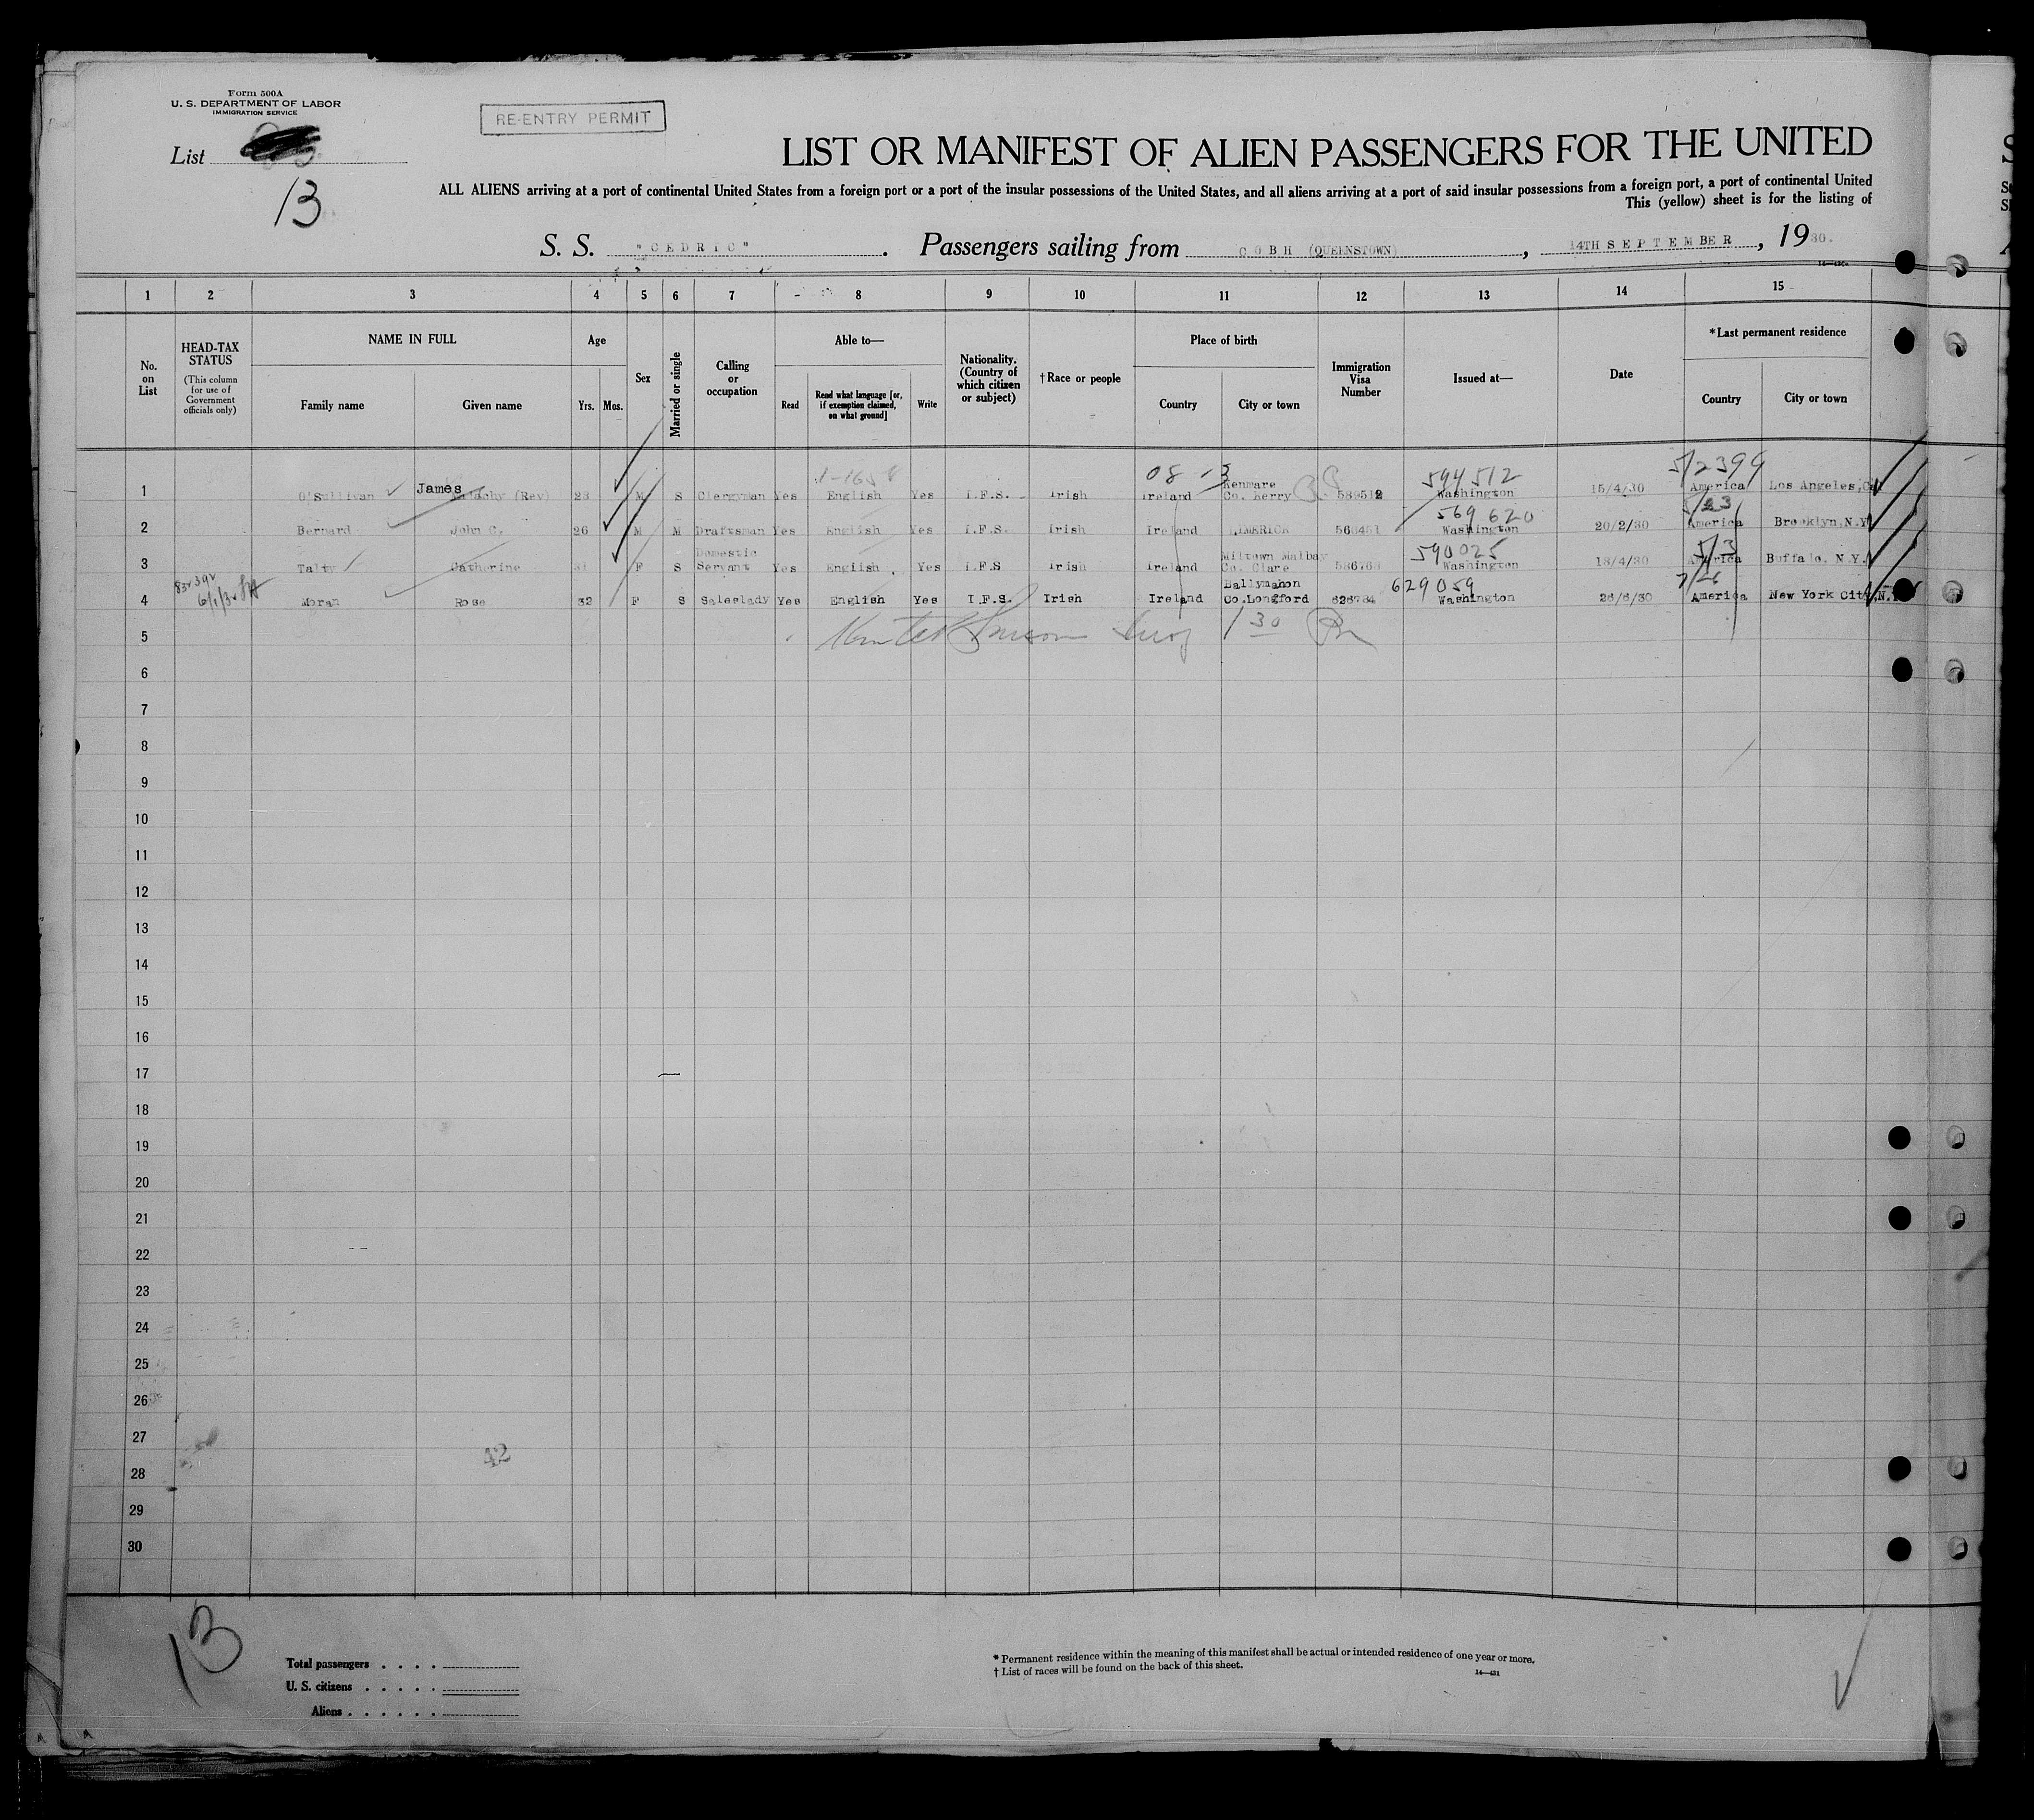 Form 500A
U. S. DEPARTMENT OF LABOR
IMMIGRATION SERVICE
RE-ENTRY PERMIT
List
13
LIST OR MANIFEST OF ALIEN PASSENGERS FOR THE UNITED
ALL ALIENS arriving at a port of continental United States from a foreign port or a port of the insular possessions of the United States, and all aliens arriving at a port of said insular possessions from a foreign port, a port of continental United
This (yellow) sheet is for the listing of
S. S. "CEDRIC". Passengers sailing from COBH (QUEENSTOWN), 14TH SEPTEMBER, 1930.
1 2 3 4 5 6 7 8 9 10 11 12 13 14 15
No. on List
HEAD-TAX STATUS
(This column for use of Government officials only)
NAME IN FULL
Family name
Given name
Age
Yrs.
Mos.
Sex
Married or single
Calling or occupation
Able to—
Read
Read what language [or, if exemption claimed, on what ground]
Write
Nationality. (Country of which citizen or subject)
† Race or people
Place of birth
Country
City or town
Immigration Visa Number
Issued at—
Date
*Last permanent residence
Country
City or town
08 13 594512 5/2399
1 O'Sullivan James (Rev) 28 M S Clergyman Yes English Yes I.F.S. Irish Ireland Kenmare Co. Kerry Washington 15/4/30 America Los Angeles, Cal
569620 5/23
2 Bernard John C. 26 M M Draftsman Yes English Yes I.F.S. Irish Ireland LIMERICK Washington 20/2/30 America Brooklyn, N.Y
590025 5/3
3 Talty Catherine 31 F S Domestic Servant Yes English Yes I.F.S Irish Ireland Miltown Malbay Co. Clare Washington 18/4/30 America Buffalo. N.Y.
629059 7/26
4 Moran Rose 32 F S Saleslady Yes English Yes I.F.S. Irish Ireland Ballymahon Co.Longford 626784 Washington 26/6/30 America New York City, N.Y
5 1 30
6
7
8
9
10
11
12
13
14
15
16
17
18
19
20
21
22
23
24
25
26
27
42
28
29
30
13
Total passengers . . . .
U. S. citizens . . . . .
Aliens . . . . . .
* Permanent residence within the meaning of this manifest shall be actual or intended residence of one year or more.
† List of races will be found on the back of this sheet.
14—431